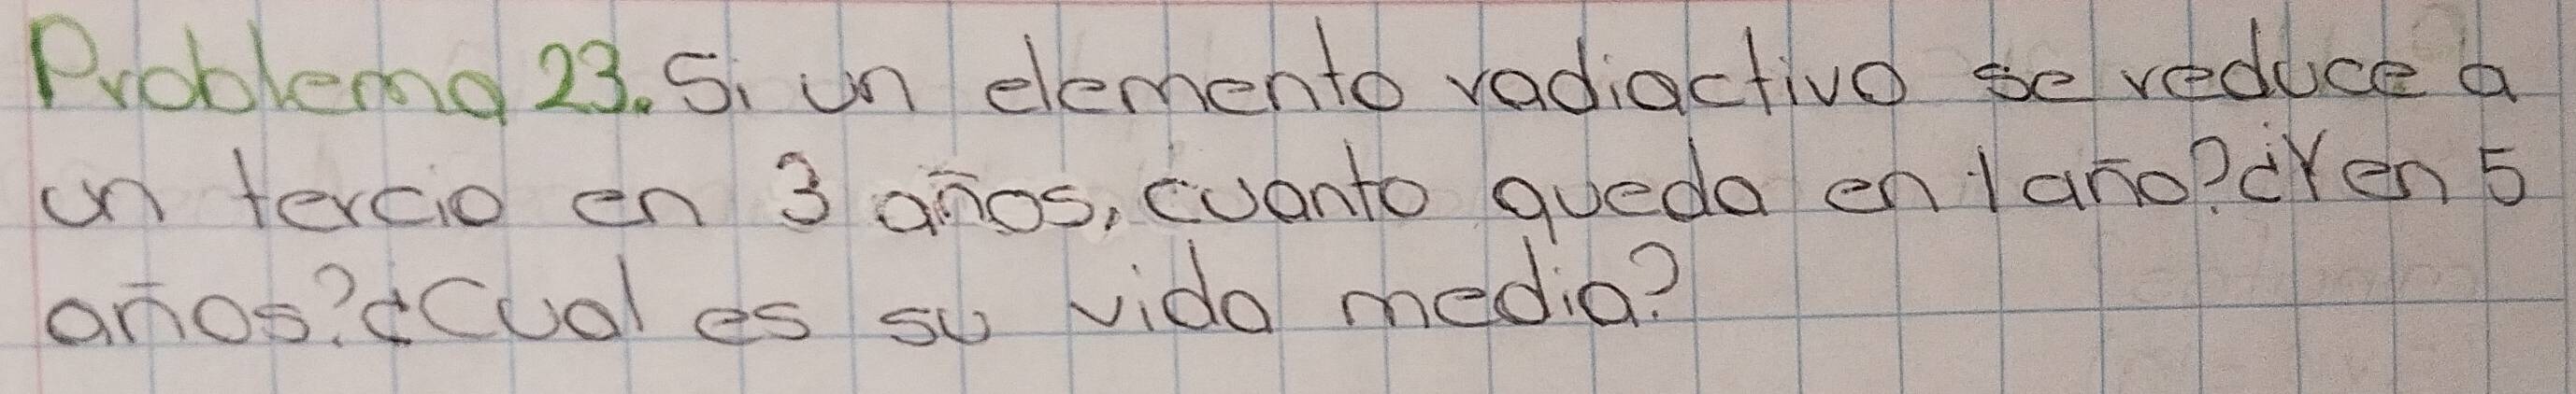 Problema 23. Si un elemento radiactivo se reduce a
un tercio en 3 años, cuanto queda en 1 año? ¿Y en 5
años? ¿Cual es su vida media?